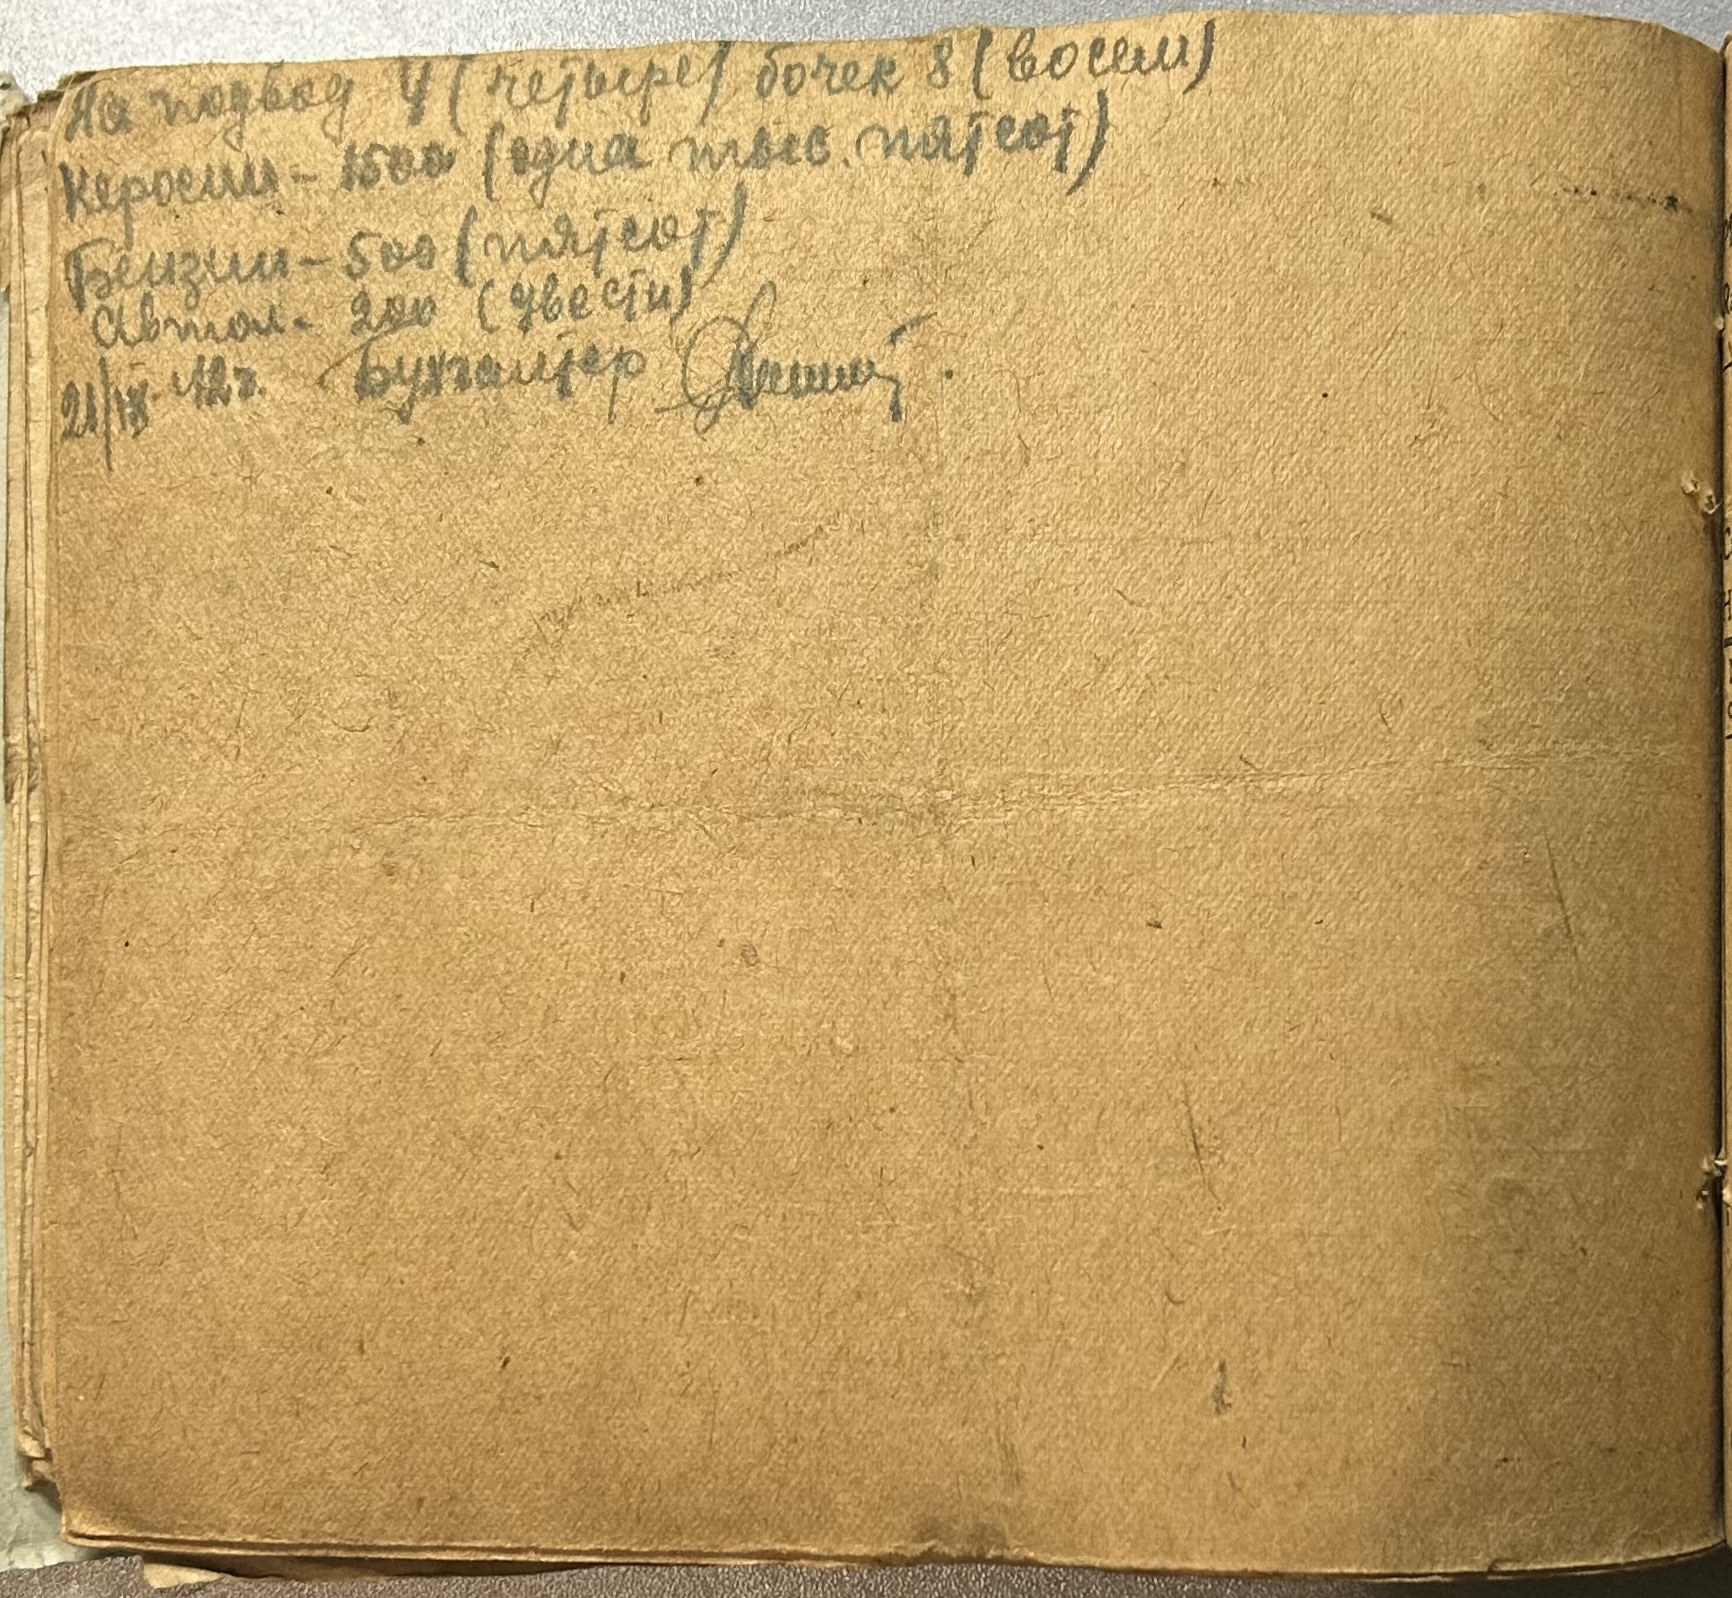 На подвод 4 (четыре) бочек 8 (восем)
Керосин - 1500 (одна тыс. пятсот)
Бензин - 500 (пятсот)
Автол. - 200 (двести)
21/IX-42г. Бухгалтер